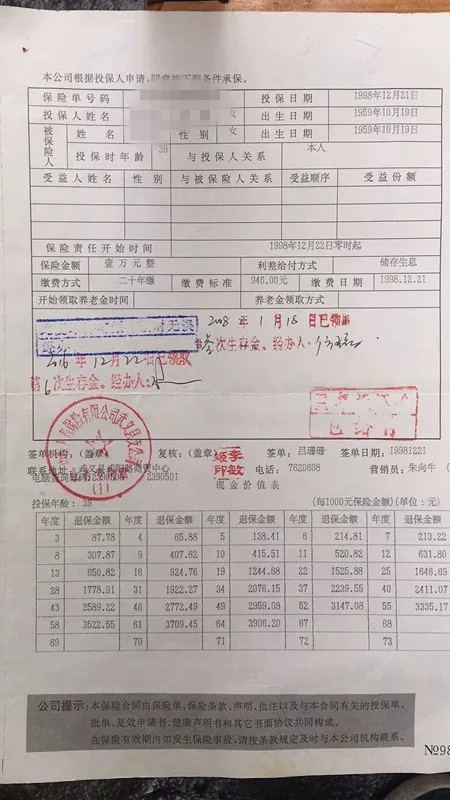 本公司根据投保人申请,同意按下列条件承保。
保险单号码 投保日期 1998年12月21日
投保人姓名 女 出生日期 1959年10月19日
被保险人 姓名 性别 女 出生日期 1959年10月19日
投保时年龄 39 与投保人关系 本人
受益人姓名 性别 与被保险人关系 受益顺序 受益份额
保险责任开始时间 1998年12月22日零时起
保险金额 壹万元整 利差给付方式 储存生息
缴费方式 二十年缴 缴费标准 946.00元 缴费日期 1998.12.21
开始领取养老金时间 养老金领取方式
2008年1月18日已领取
次生存金。经办人:
2016年12月22日已领取
第6次生存金。经办人:
签单机构:(盖章) 复核:(盖章) 签单:吕珊珊 签单日期:19981221
联系地址: 电话:7620808 营销员:朱向牛
2390501
现金价值表
投保年龄:39 (每1000元保险金额)(单位:元)
年度 退保金额 年度 退保金额 年度 退保金额 年度 退保金额 年度 退保金额
3 87.78 4 65.88 5 138.41 6 214.81 7 213.22
8 307.87 9 407.62 10 415.51 11 520.82 12 631.80
13 650.82 16 924.76 19 1244.68 22 1525.88 25 1646.69
28 1778.91 31 1922.27 34 2076.15 37 2239.55 40 2411.07
43 2589.22 46 2772.49 49 2959.08 52 3147.08 55 3335.17
58 3522.55 61 3709.45 64 3906.20 67 68
69 70 71 72 73
公司提示:本保险合同由保险单、保险条款、声明、批注以及与本合同有关的投保单、
批单、复效申请书、健康声明书和其它书面协议共同构成。
在保险有效期内如发生保险事故,请按条款规定及时与本公司机构联系。
№98